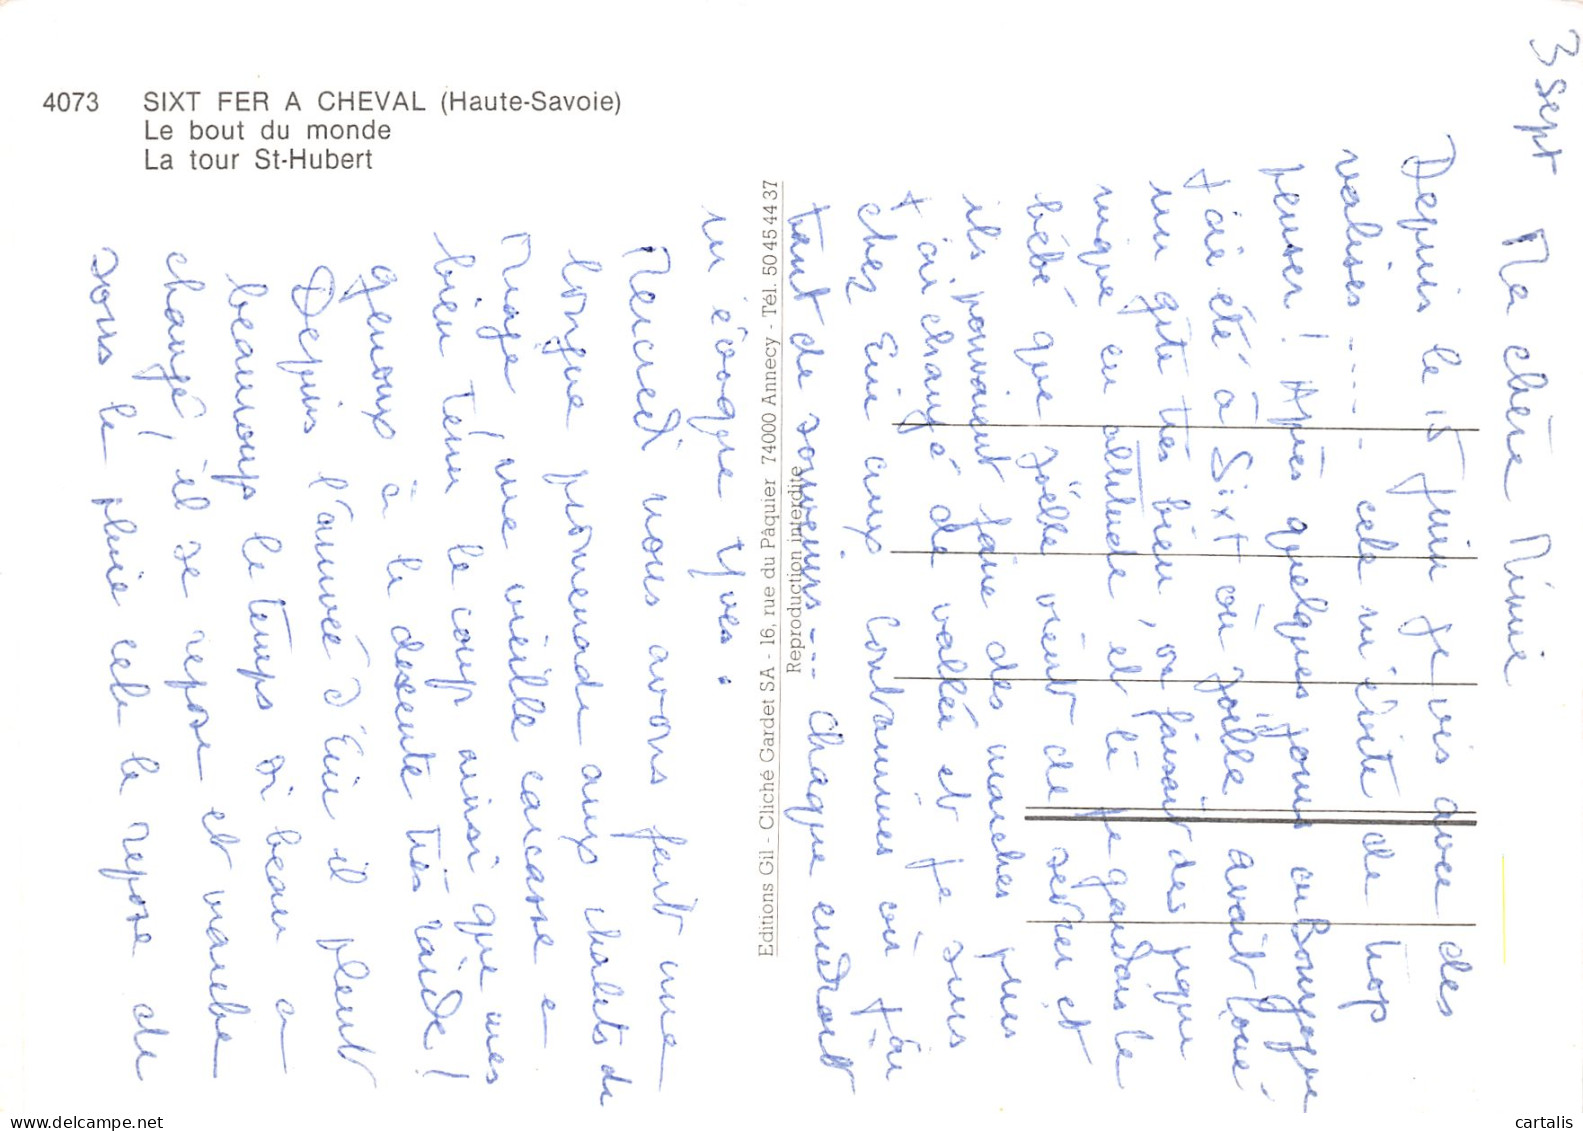 4073 SIXT FER A CHEVAL (Haute-Savoie)
Le bout du monde
La tour St-Hubert
Editions Gil - Cliché Gardet SA - 16, rue du Pâquier 74000 Annecy - Tél. 50 45 44 37
Reproduction interdite
3 Sept
Ma chère Mimie
Depuis le 15 Juin je vis avec des
valises ----- cela m'évite de trop
penser ! Après quelques jours en Bourgogne
j'ai été à Sixt où Joëlle avait loué
un gîte très bien, on faisait des pique
nique en altitude, et là je gardais le
bébé que Joëlle vient de sevrer et
ils pouvaient faire des marches puis
j'ai changé de vallée et je suis
chez Eric aux Contamines où j'ai
tant de souvenirs --- Chaque endroit
m'évoque Yves.
Mercredi nous avons fait une
longue promenade aux chalets de
Miage, ma vieille carcasse a
bien tenu le coup ainsi que mes
genoux à la descente très raide !
Depuis l'arrivée d'Eric il pleut
beaucoup le temps si beau a
changé ! il se repose et marche
sous la pluie cela le repose de